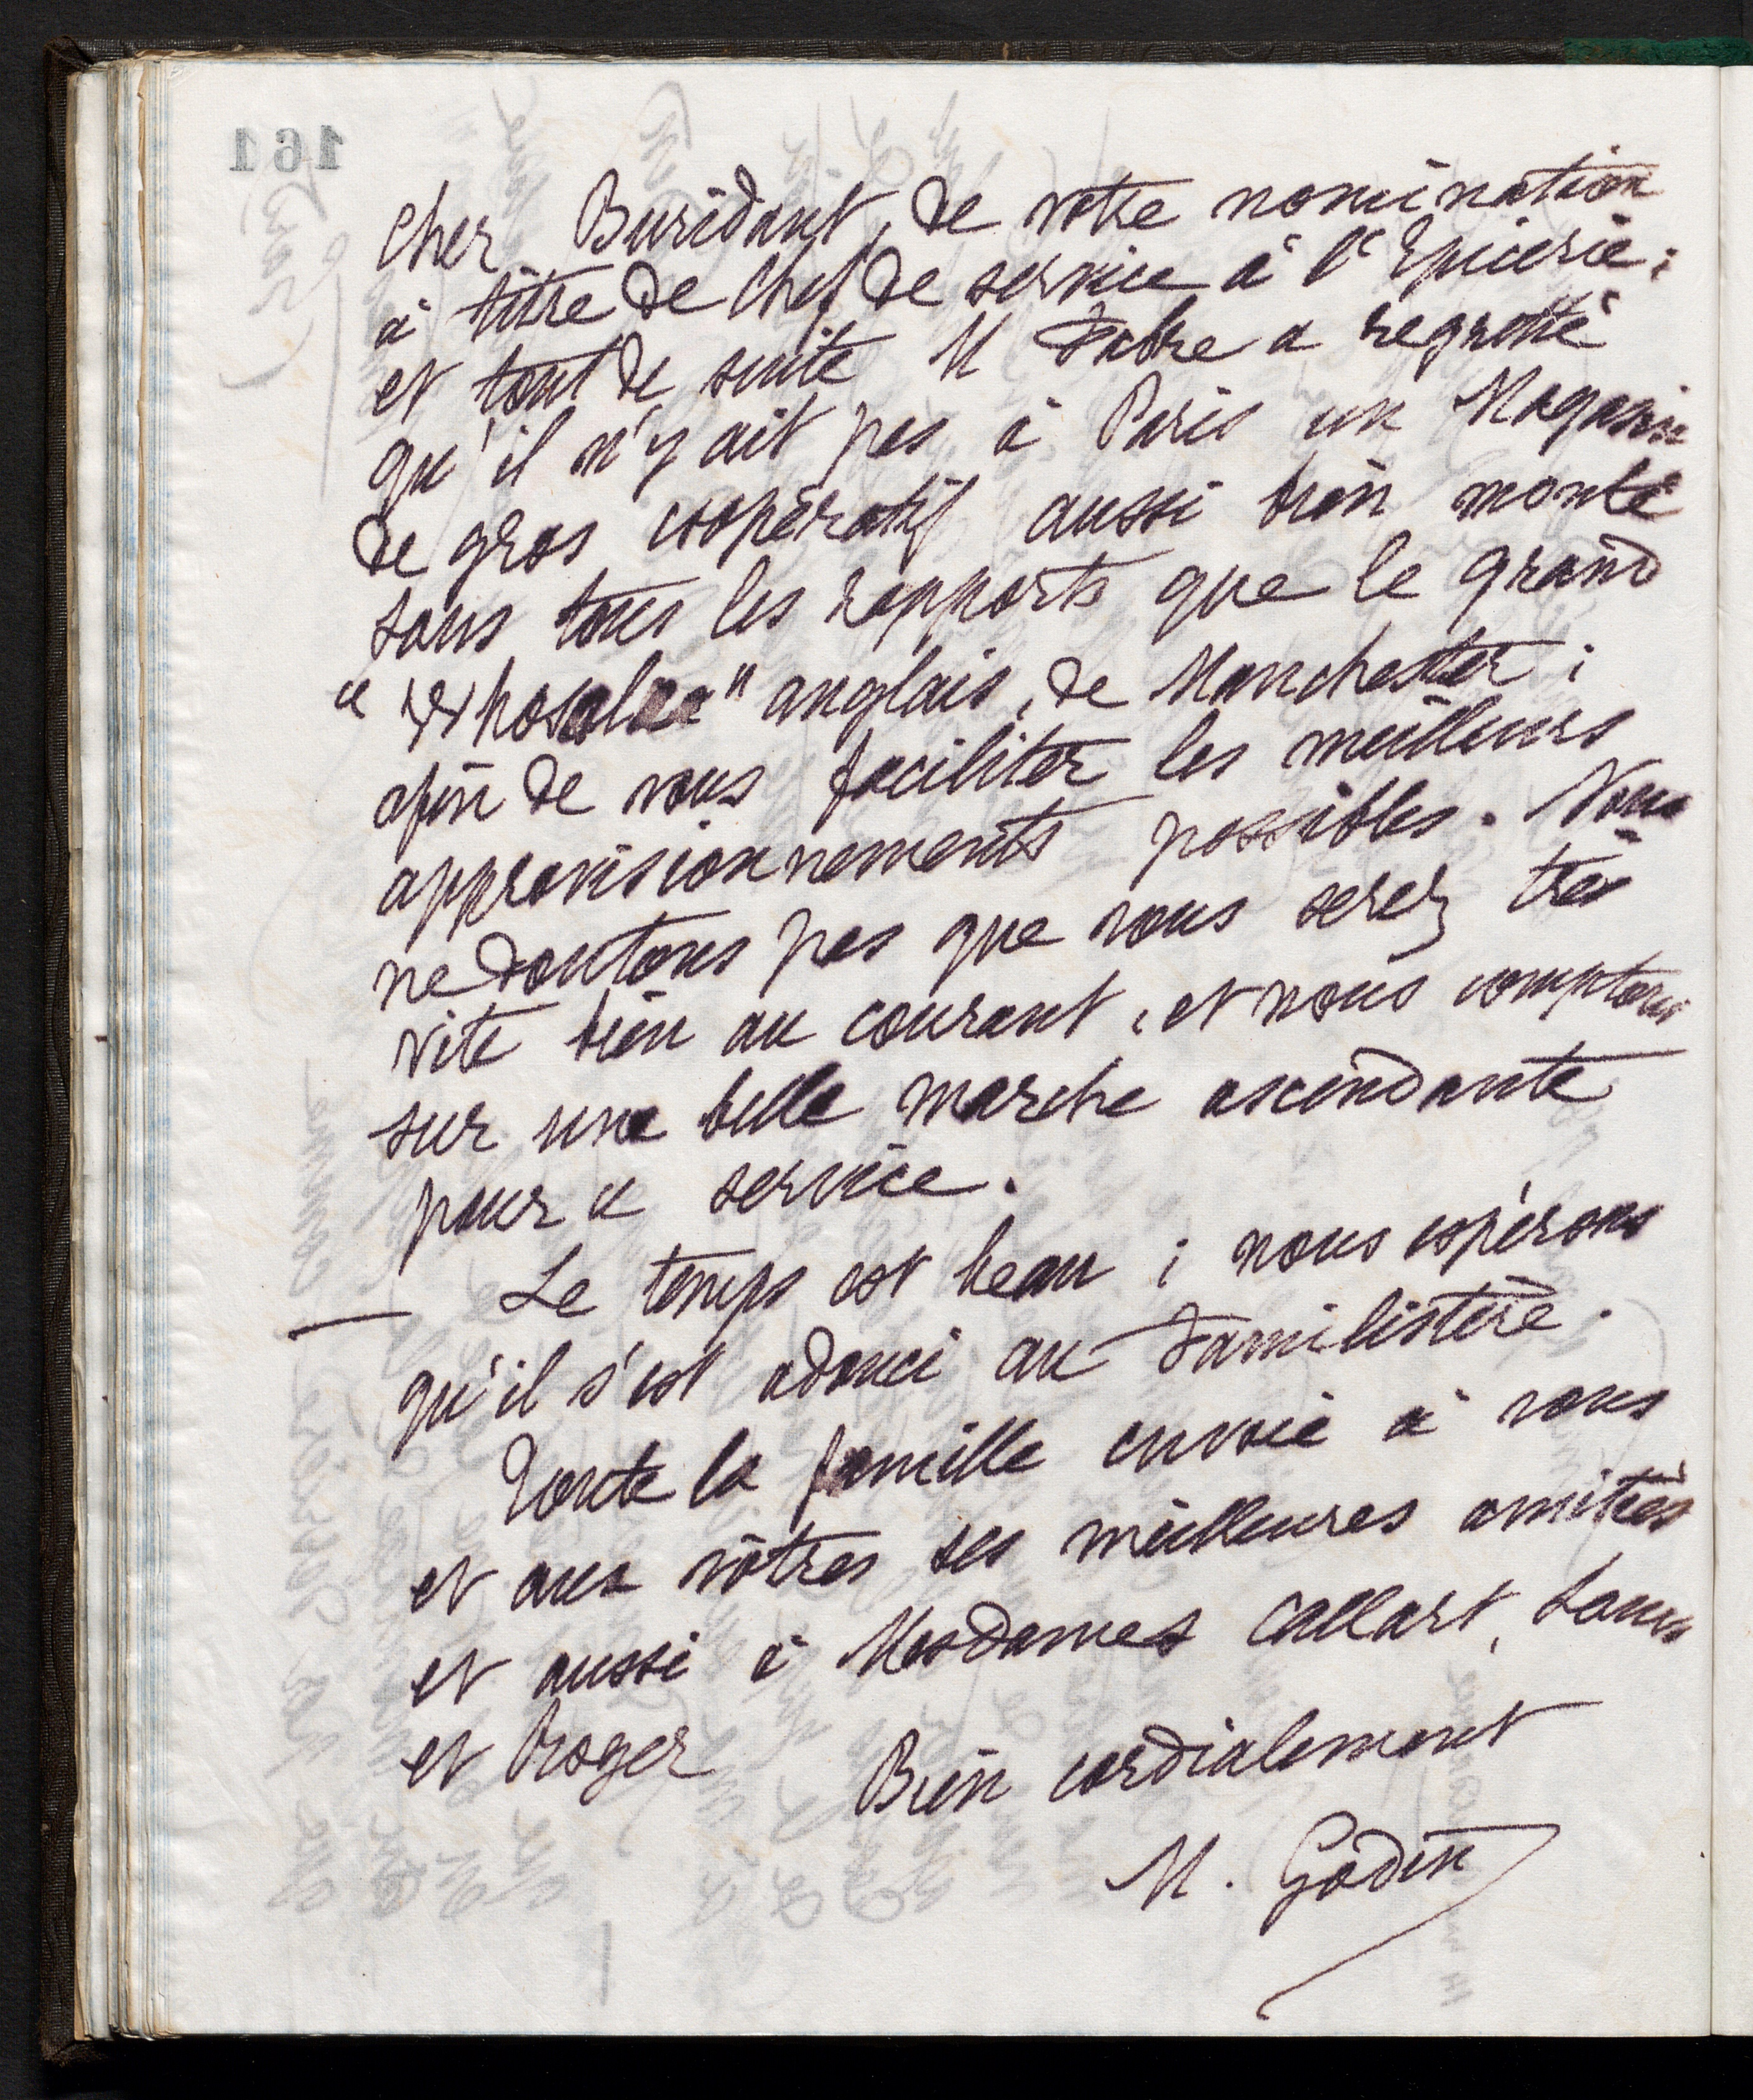 161
cher Buridant, de votre nomination
à titre de Chef de service à l'Epicerie ;
et tout de suite M Fabre a regretté
qu'il n'y ait pas à Paris un Magasin
de gros coopératif aussi bien monté
sous tous les rapports que le grand
" " anglais, de Manchester ;
afin de vous faciliter les meilleurs
approvisionnements possibles. Nous
ne doutons pas que vous serez très
vite bien au courant, et nous comptons
sur une belle marche ascendante
pour ce service.
— Le temps est beau ; nous espérons
qu'il s'est adouci au Familistère.
Toute la famille envoie à vous
et aux vôtres ses meilleures amitiés
et aussi à Mesdames Callart, Louis
et Proger
Bien cordialement
M. Godin